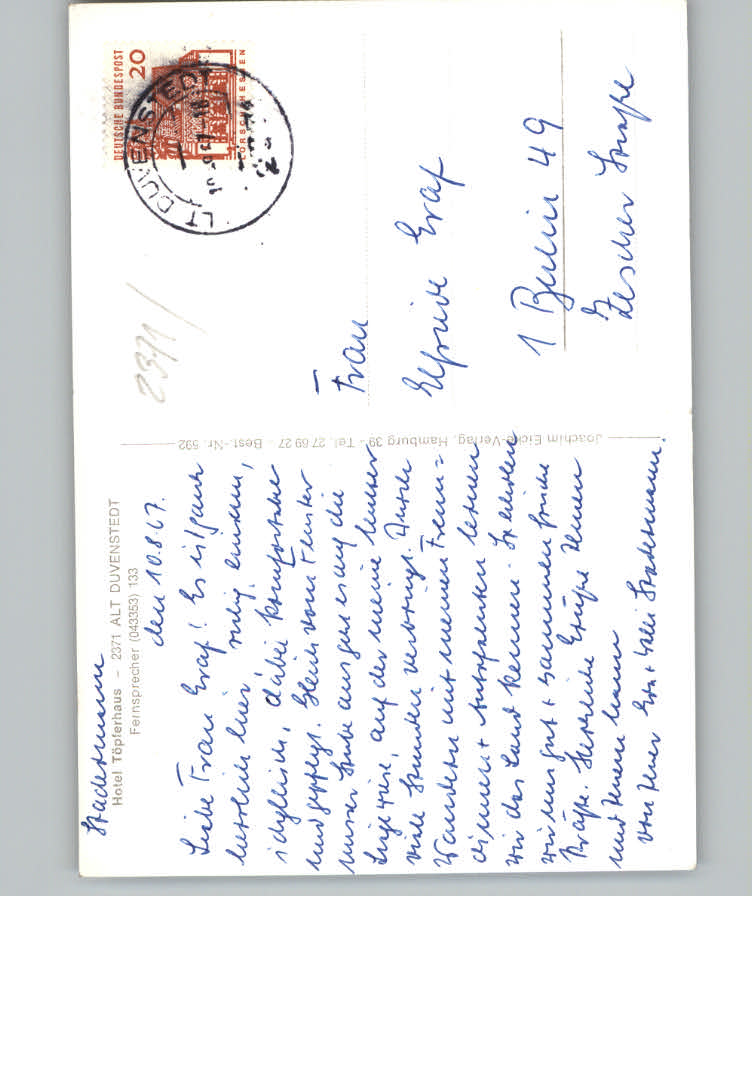 Stadermann
Hotel Töpferhaus - 2371 ALT DUVENSTEDT
Fernsprecher (043353) 133
den 10.8.67.
Liebe Frau Graf! Es ist ganz
herrlich hier, ruhig, einsam,
idyllisch, dabei komfortabel
und gepflegt. Gleich vom Fenster
unserer Stube aus geht es auf die
Liegewiese, auf der meine Mutter
viele Stunden verbringt. Durch
Wandern mit meinen Freun=
dinnen + Autofahrten lernen
wir das Land kennen. So erholen
wir uns gut + sammeln frische
Kräfte. Herzliche Grüße Ihnen
und Ihrem Mann
von Ihrer Eva + Stadermann.
Joachim Eicke-Verlag, Hamburg 39 - Tel. 27 69 27 - Best.-Nr. 592
2371/
DEUTSCHE BUNDESPOST
20
LORSCH HESSEN
LT DUVENSTEDT
Frau
Elfriede Graf
1 Berlin 49
Zescher Straße